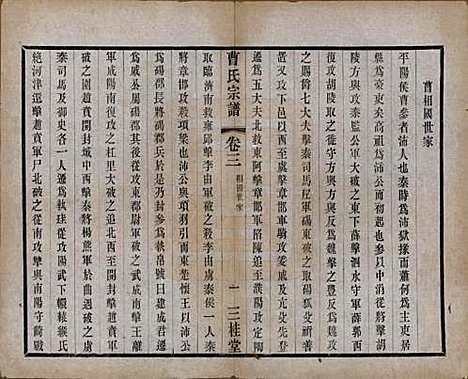 曹相國世家
平陽侯曹參者沛人也秦時爲沛獄掾而蕭何爲主吏居
縣爲豪吏矣高祖爲沛公而初起也參以中涓從將擊胡
陵方與攻秦監公軍大破之東下薛擊泗水守軍薛郭西
復攻胡陵取之徙守方與方與反爲魏擊之豐反爲魏攻
之賜爵七大夫擊秦司馬𡰥軍碭東破之取碭狐父祁善
置又攻下邑以西至虞擊章邯車騎攻爰戚及亢父先登
遷爲五大夫北救東阿擊章邯軍陷陳追至濮陽攻定陶
曹氏宗譜
卷三
相國世家
一
三桂堂
取臨濟南救雍邱擊李由軍破之殺李由虜秦侯一人
將章邯破殺項梁也沛公與項羽引而東楚懷王以沛公
爲碭郡長將碭郡兵於是乃封參爲執帛號曰建成君遷
爲戚公屬碭郡其後從攻東郡尉軍破之成武南擊王離
軍成陽南復攻之杠里大破之追北西至開封擊趙賁軍
破之圍趙賁開封城中西擊秦將楊熊軍於曲遇破之虜
秦司馬及御史各一人遷爲執珪從攻陽武下轘轅緱氏
絕河津還擊趙賁軍尸北破之從南攻犨與南陽守齮戰